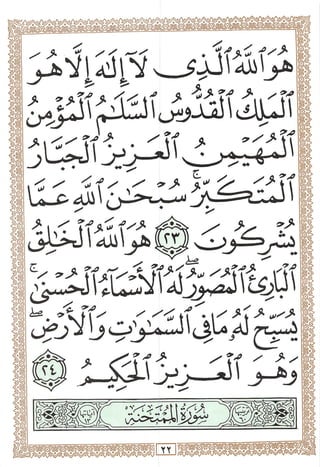 هُوَ ٱللَّهُ ٱلَّذِى لَآ إِلَٰهَ إِلَّا هُوَ
ٱلْمَلِكُ ٱلْقُدُّوسُ ٱلسَّلَٰمُ ٱلْمُؤْمِنُ
ٱلْمُهَيْمِنُ ٱلْعَزِيزُ ٱلْجَبَّارُ
ٱلْمُتَكَبِّرُ ۚ سُبْحَٰنَ ٱللَّهِ عَمَّا
يُشْرِكُونَ ٢٣ هُوَ ٱللَّهُ ٱلْخَٰلِقُ
ٱلْبَارِئُ ٱلْمُصَوِّرُ ۖ لَهُ ٱلْأَسْمَآءُ ٱلْحُسْنَىٰ ۚ
يُسَبِّحُ لَهُۥ مَا فِى ٱلسَّمَٰوَٰتِ وَٱلْأَرْضِ ۖ
وَهُوَ ٱلْعَزِيزُ ٱلْحَكِيمُ ٢٤
سُورَةُ ٱلْمُمْتَحَنَةِ
٢٢